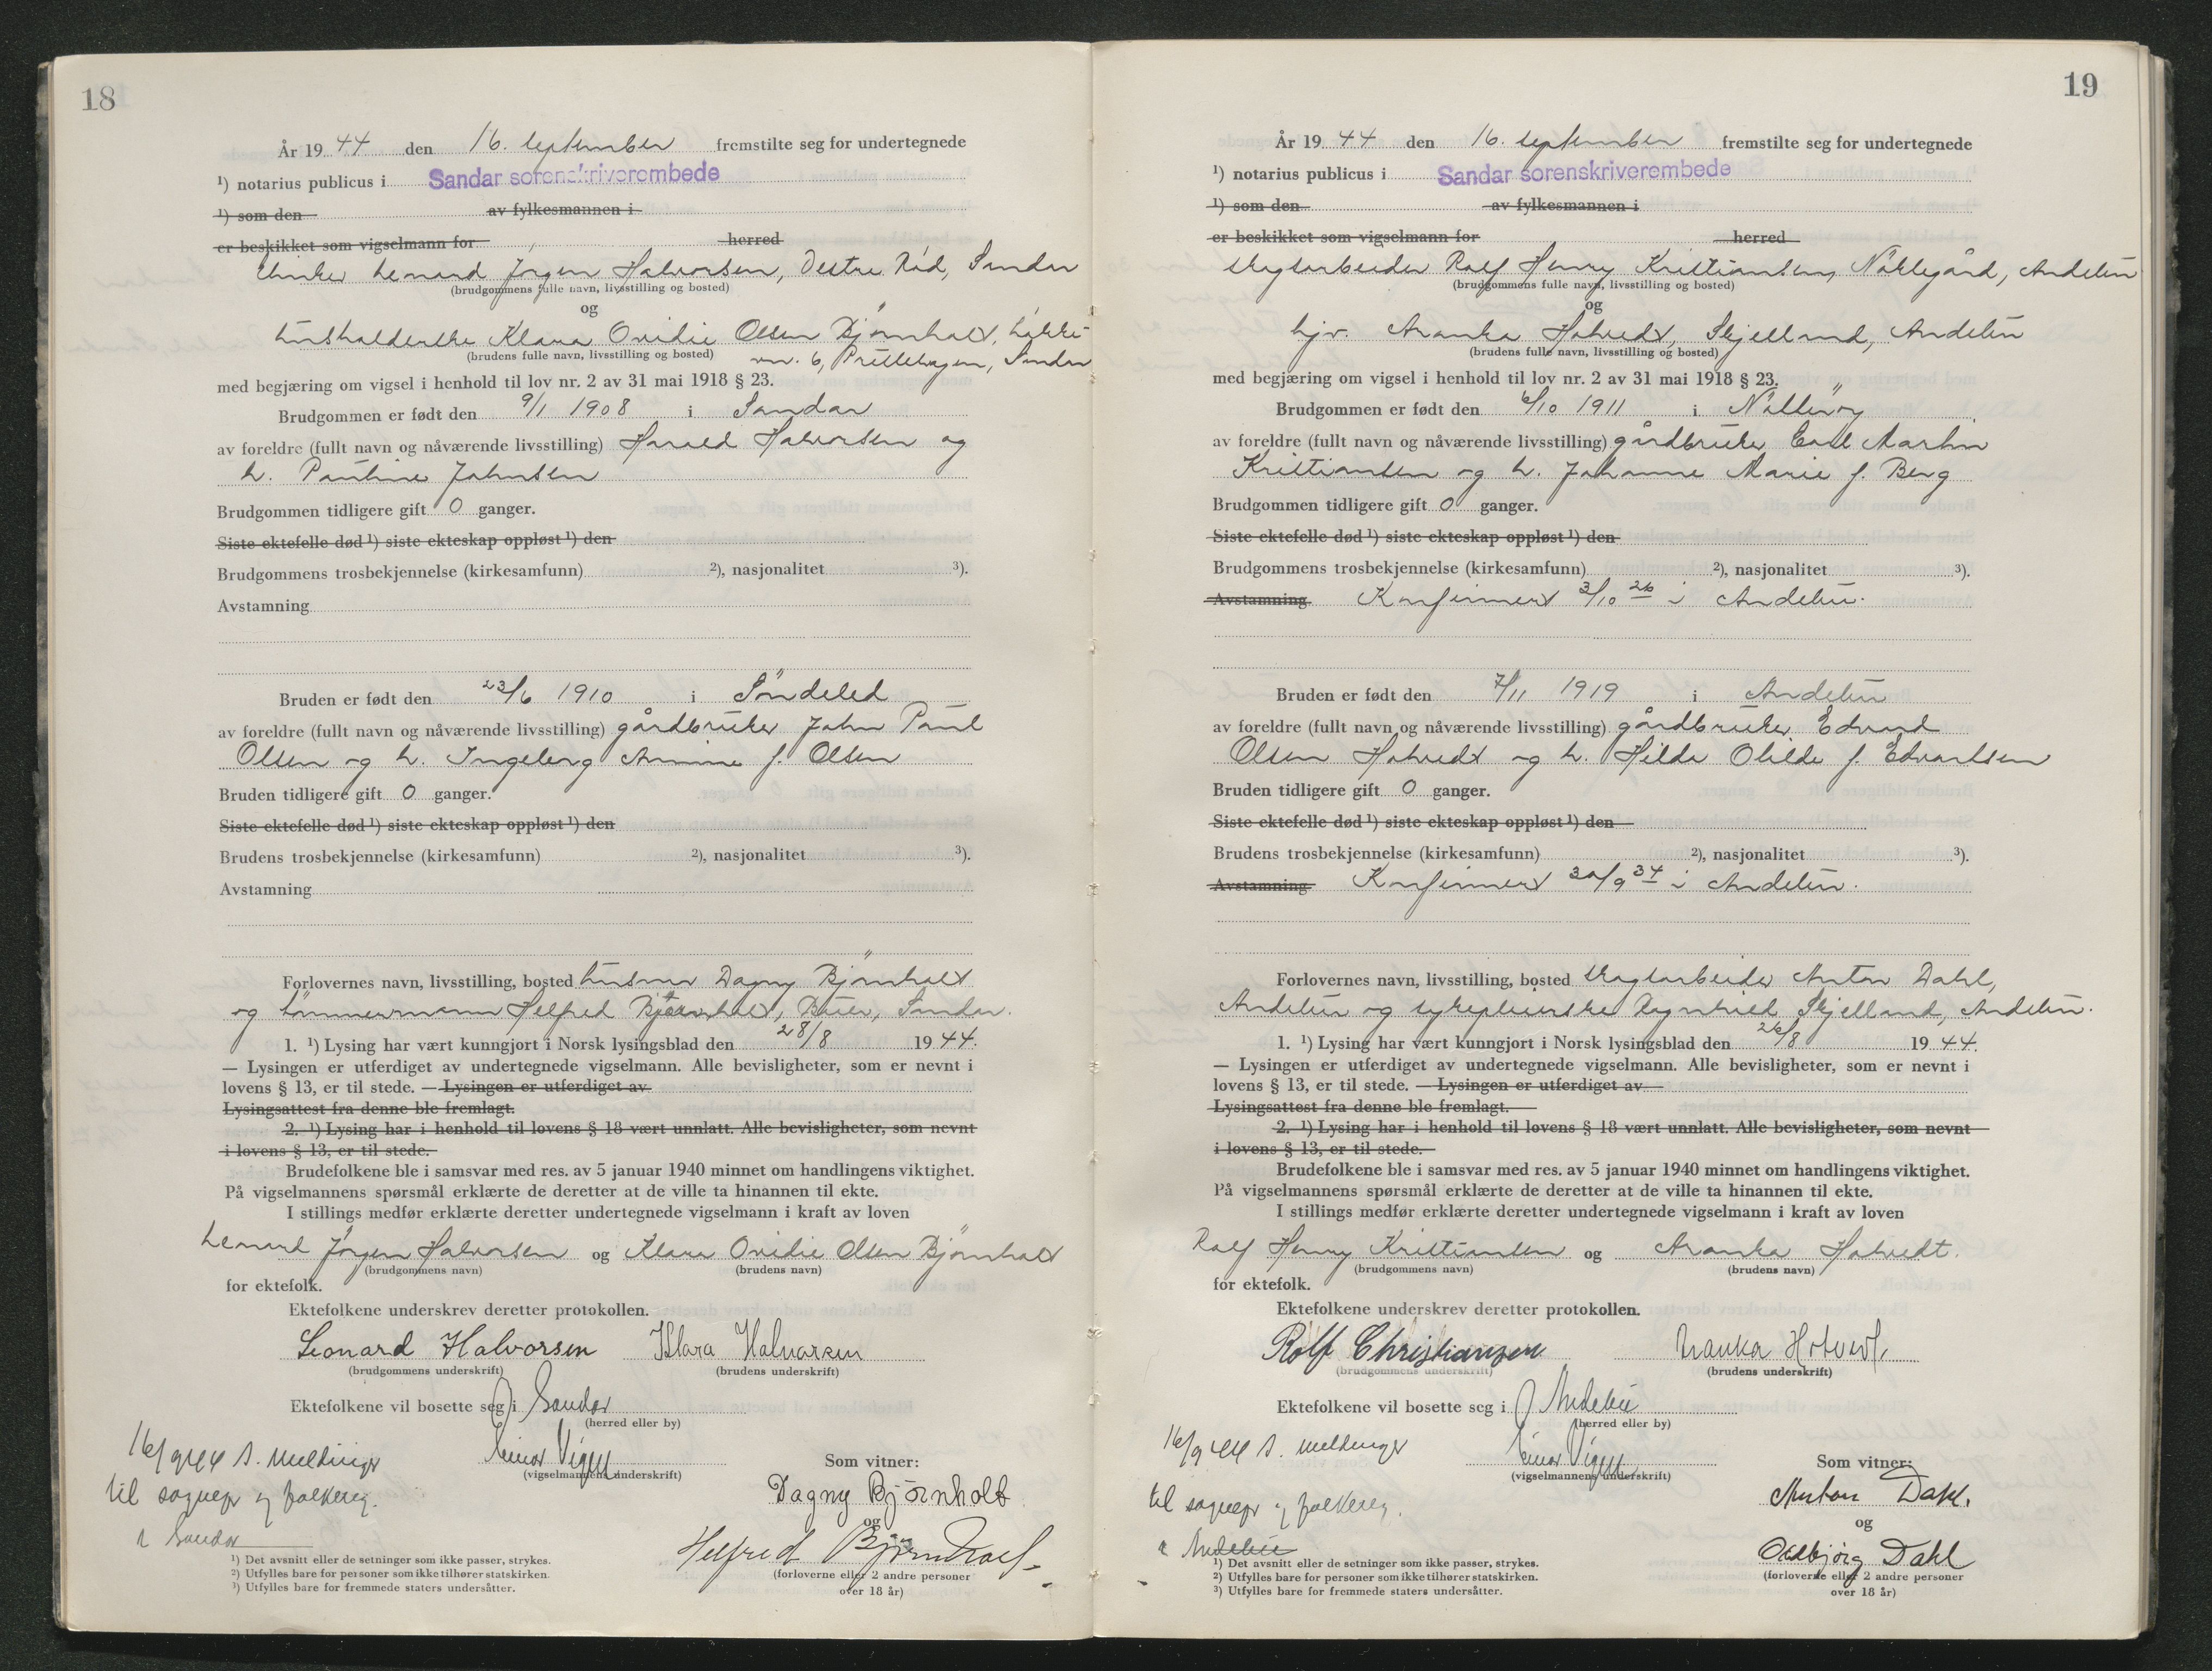 18
År 19 44 den 16. september fremstilte seg for undertegnede
¹) notarius publicus i Sandar sorenskriverembede
¹) som den av fylkesmannen i
er beskikket som vigselmann for herred
Lenard Jørgen Halvorsen, Vestre Rød, Sandar
(brudgommens fulle navn, livsstilling og bosted)
og
Klara Ovidie Olsen Bjørnholt, Løkke-
(brudens fulle navn, livsstilling og bosted) vn. 6, Prestehagen, Sandar
med begjæring om vigsel i henhold til lov nr. 2 av 31 mai 1918 § 23.
Brudgommen er født den 9/1 1908 i Sandar
av foreldre (fullt navn og nåværende livsstilling) Harald Halvorsen og
h. Pauline Johnsen
Brudgommen tidligere gift 0 ganger.
Siste ektefelle død ¹) siste ekteskap oppløst ¹) den
Brudgommens trosbekjennelse (kirkesamfunn) ²), nasjonalitet ³).
Avstamning
Bruden er født den 23/6 1910 i Søndeled
av foreldre (fullt navn og nåværende livsstilling) gårdbruker John Paul
Olsen og h. Ingeborg Annine f. Olsen
Bruden tidligere gift 0 ganger.
Siste ektefelle død ¹) siste ekteskap oppløst ¹) den
Brudens trosbekjennelse (kirkesamfunn) ²), nasjonalitet ³).
Avstamning
Forlovernes navn, livsstilling, bosted husmor Dagny Bjørnholt
og tømmermann Helfred Bjørnholt, Sandar.
1. ¹) Lysing har vært kunngjort i Norsk lysingsblad den 28/8 19 44.
— Lysingen er utferdiget av undertegnede vigselmann. Alle bevisligheter, som er nevnt i
lovens § 13, er til stede. — Lysingen er utferdiget av
Lysingsattest fra denne ble fremlagt.
2. ¹) Lysing har i henhold til lovens § 18 vært unnlatt. Alle bevisligheter, som nevnt
i lovens § 13, er til stede.
Brudefolkene ble i samsvar med res. av 5 januar 1940 minnet om handlingens viktighet.
På vigselmannens spørsmål erklærte de deretter at de ville ta hinannen til ekte.
I stillings medfør erklærte deretter undertegnede vigselmann i kraft av loven
Lenard Jørgen Halvorsen og Klara Ovidie Olsen Bjørnholt
(brudgommens navn) (brudens navn)
for ektefolk.
Ektefolkene underskrev deretter protokollen.
Leonard Halvorsen Klara Halvorsen
(brudgommens underskrift) (brudens underskrift)
Ektefolkene vil bosette seg i Sandar
(herred eller by)
16/9 44 s. meldinger Einar
(vigselmannens underskrift) Som vitner:
til sognepr og folkereg. Dagny Bjørnholt
i Sandar og
Helfred Bjørnholt
(forloverne eller 2 andre personer
over 18 år)
¹) Det avsnitt eller de setninger som ikke passer, strykes.
²) Utfylles bare for personer som ikke tilhører statskirken.
³) Utfylles bare for fremmede staters undersåtter.
19
År 19 44 den 16. september fremstilte seg for undertegnede
¹) notarius publicus i Sandar sorenskriverembede
¹) som den av fylkesmannen i
er beskikket som vigselmann for herred
skogsarbeider Rolf Henry Kristiansen, Nøklegård, Andebu
(brudgommens fulle navn, livsstilling og bosted)
og
hjv. Aranka Hotvedt, Skjelland, Andebu
(brudens fulle navn, livsstilling og bosted)
med begjæring om vigsel i henhold til lov nr. 2 av 31 mai 1918 § 23.
Brudgommen er født den 6/10 1911 i Nøtterøy
av foreldre (fullt navn og nåværende livsstilling) gårdbruker Carl Martin
Kristiansen og h. Johanne Marie f. Berg
Brudgommen tidligere gift 0 ganger.
Siste ektefelle død ¹) siste ekteskap oppløst ¹) den
Brudgommens trosbekjennelse (kirkesamfunn) ²), nasjonalitet ³).
Avstamning Konfirmert 3/10 26 i Andebu.
Bruden er født den 7/11 1919 i Andebu
av foreldre (fullt navn og nåværende livsstilling) gårdbruker Edvard
Olsen Hotvedt og h. Hilda Olilde f. Edvardsen
Bruden tidligere gift 0 ganger.
Siste ektefelle død ¹) siste ekteskap oppløst ¹) den
Brudens trosbekjennelse (kirkesamfunn) ²), nasjonalitet ³).
Avstamning Konfirmert 30/9 34 i Andebu.
Forlovernes navn, livsstilling, bosted skogsarbeider Anton Dahl,
Andebu og sykepleierske Skjelland, Andebu.
1. ¹) Lysing har vært kunngjort i Norsk lysingsblad den 26/8 19 44.
— Lysingen er utferdiget av undertegnede vigselmann. Alle bevisligheter, som er nevnt i
lovens § 13, er til stede. — Lysingen er utferdiget av
Lysingsattest fra denne ble fremlagt.
2. ¹) Lysing har i henhold til lovens § 18 vært unnlatt. Alle bevisligheter, som nevnt
i lovens § 13, er til stede.
Brudefolkene ble i samsvar med res. av 5 januar 1940 minnet om handlingens viktighet.
På vigselmannens spørsmål erklærte de deretter at de ville ta hinannen til ekte.
I stillings medfør erklærte deretter undertegnede vigselmann i kraft av loven
Rolf Henry Kristiansen og Aranka Hotvedt.
(brudgommens navn) (brudens navn)
for ektefolk.
Ektefolkene underskrev deretter protokollen.
Rolf Christiansen Aranka Hotvedt.
(brudgommens underskrift) (brudens underskrift)
Ektefolkene vil bosette seg i Andebu
(herred eller by)
16/9 44 s. meldinger Einar
(vigselmannens underskrift) Som vitner:
til sognepr og folkereg. Anton Dahl.
i Andebu og
Oddbjørg Dahl
(forloverne eller 2 andre personer
over 18 år)
¹) Det avsnitt eller de setninger som ikke passer, strykes.
²) Utfylles bare for personer som ikke tilhører statskirken.
³) Utfylles bare for fremmede staters undersåtter.